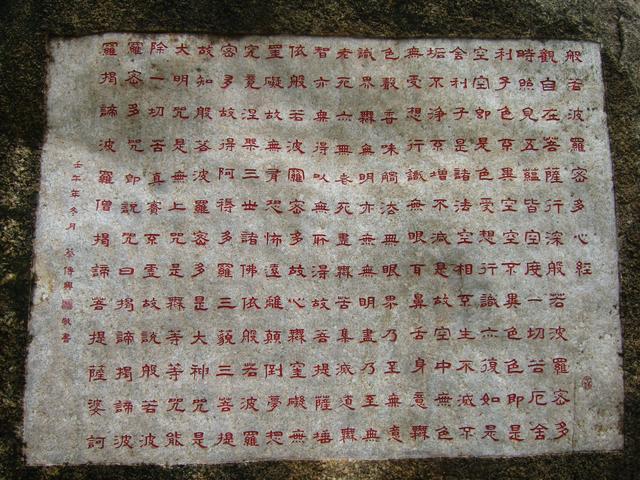 般若波羅密多心經
觀自在菩薩行深般若波羅密多
時照見五蘊皆空度一切苦厄舍
利子色不異空空不異色色即是
空空即是色受想行識亦復如是
舍利子是諸法空相不生不滅不
垢不淨不增不減是故空中無色
無受想行識無眼耳鼻舌身意無
色聲香味觸法無眼界乃至無意
識界無無明亦無無明盡乃至無
老死亦無老死盡無苦集滅道無
智亦無得以無所得故菩提薩埵
依般若波羅密多故心無罣礙無
罣礙故無有恐怖遠離顛倒夢想
究竟涅槃三世諸佛依般若波羅
密多故得阿耨多羅三藐三菩提
故知般若波羅密多是大神咒是
大明咒是無上咒是無等等咒能
除一切苦真實不虛故說般若波
羅密多咒即說咒曰揭諦揭諦波
羅揭諦波羅僧揭諦菩提薩婆訶
壬午年冬月 敬書